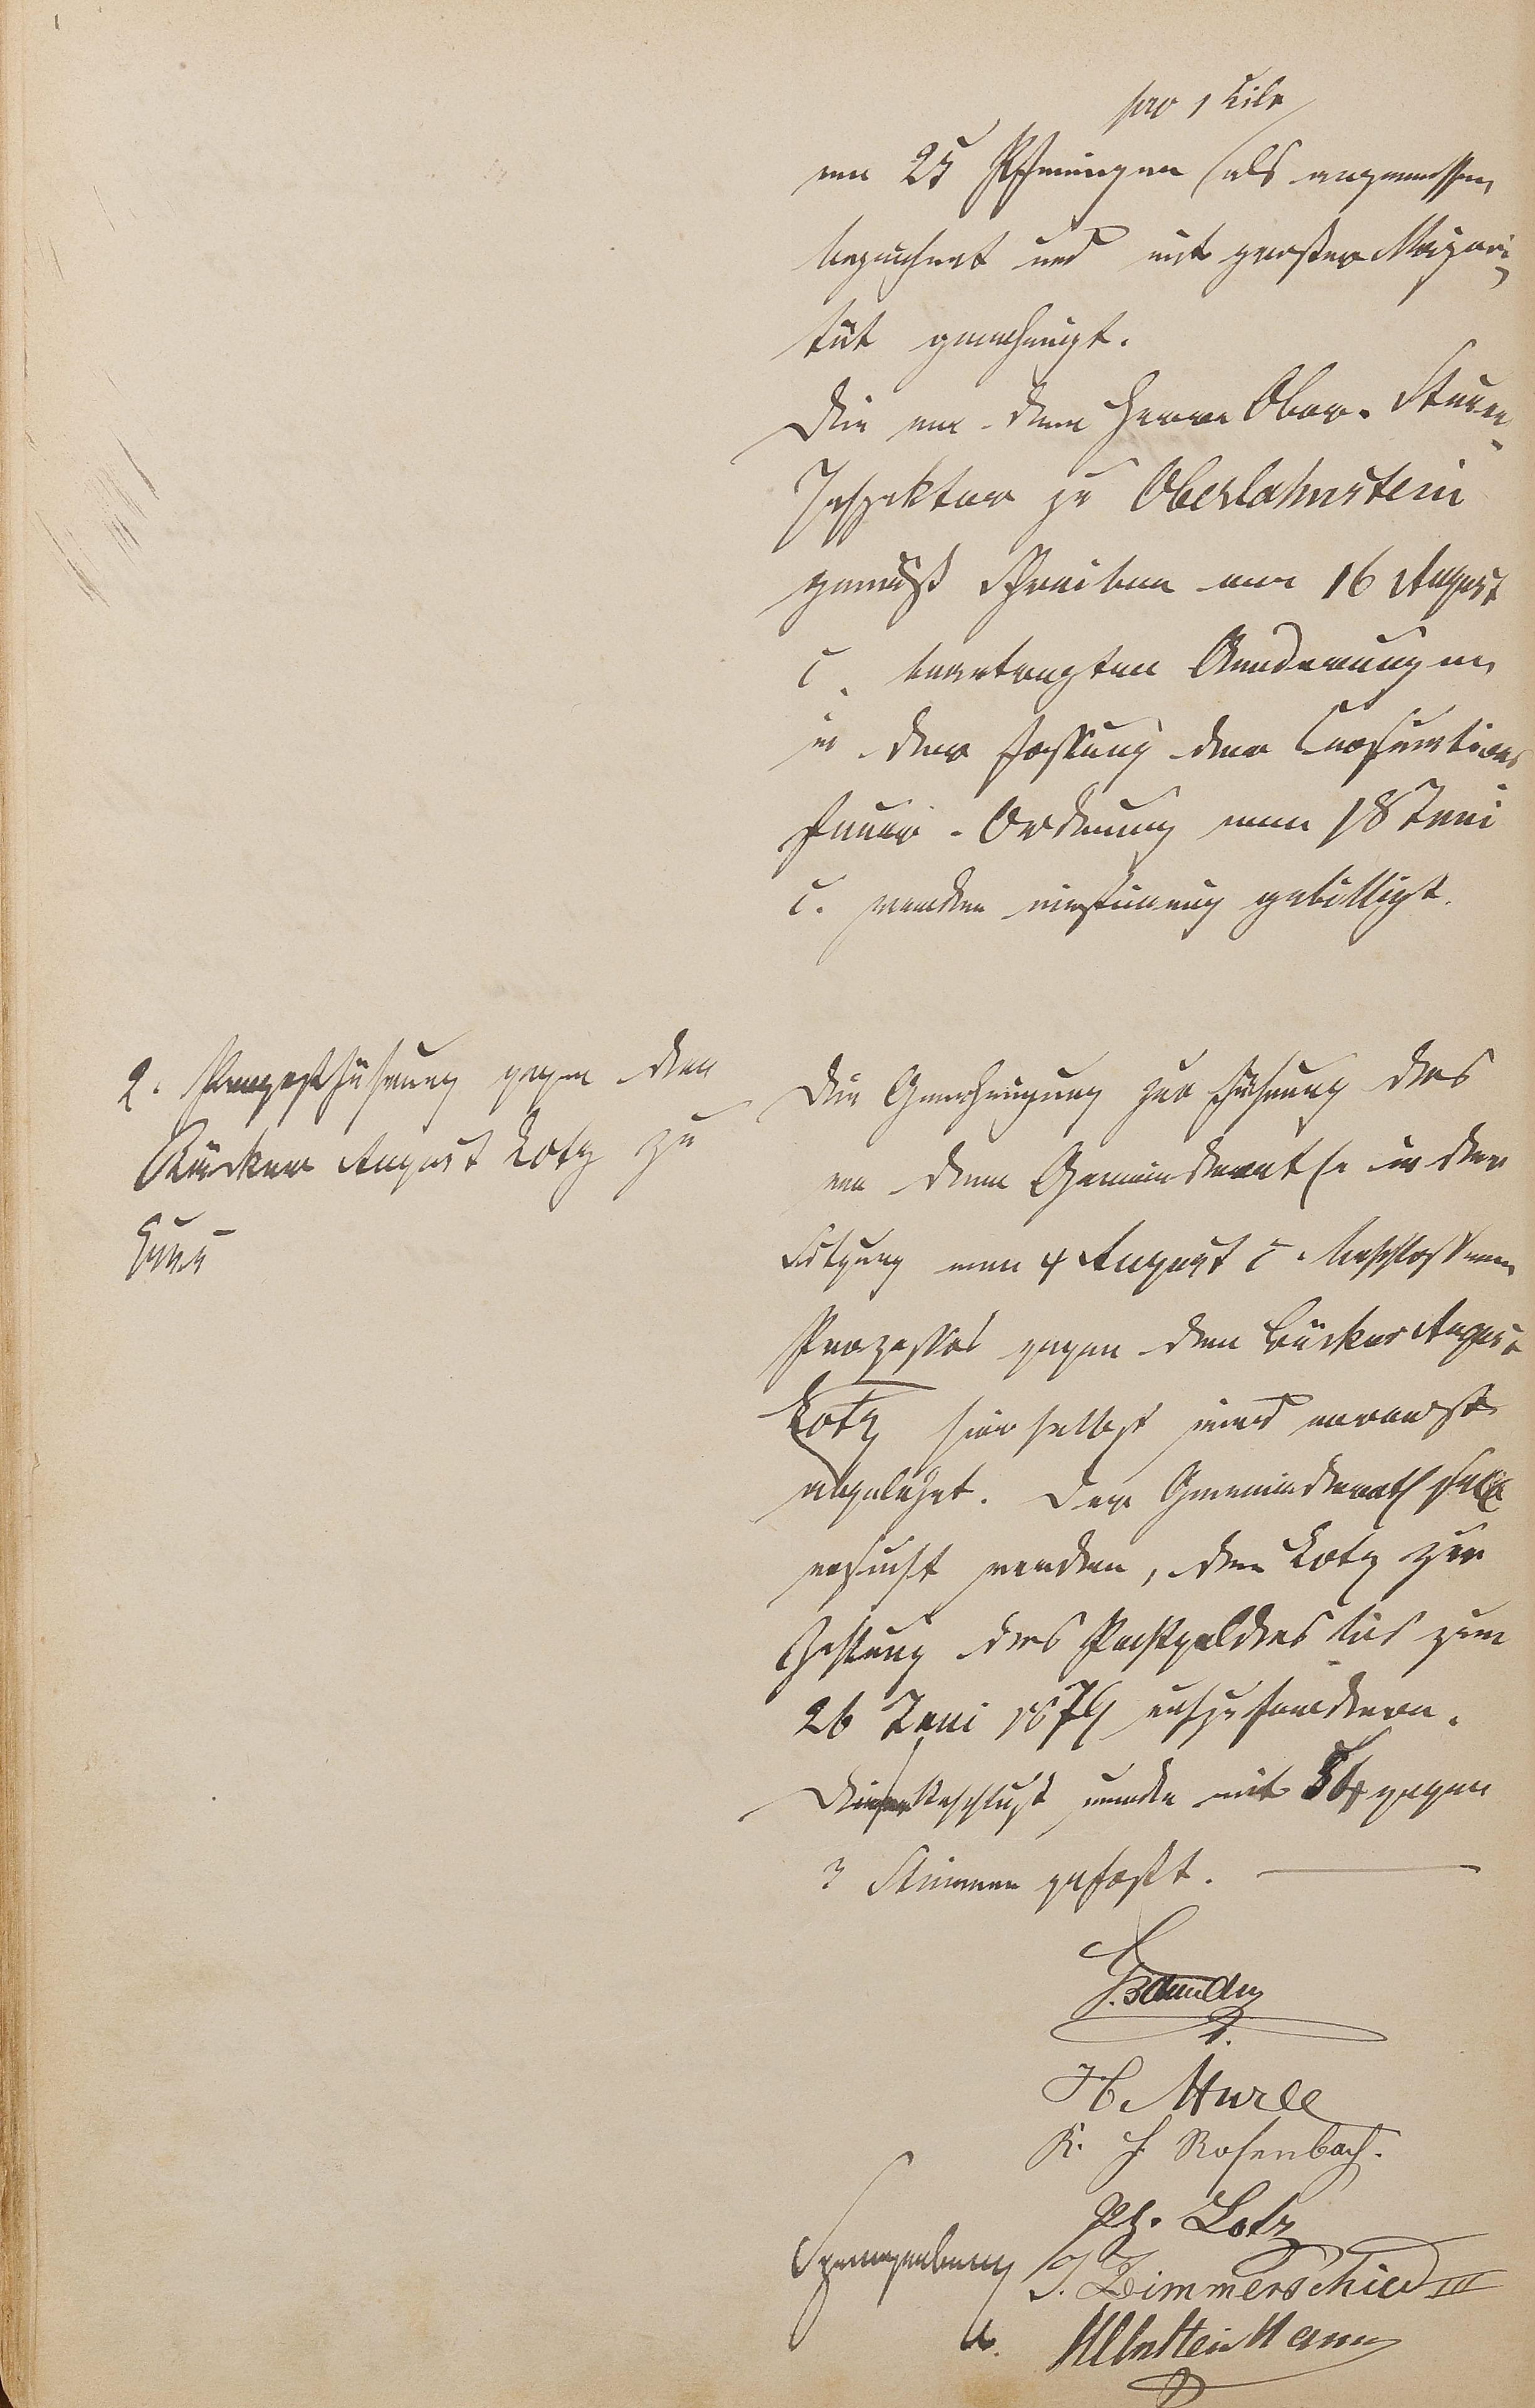 pro 1 Kilo
von 25 Pfennigen als angemessen
bezeichnet und mit großer Majori-
tät genehmigt.
Die von dem Herrn Ober-Steuer-
Inspektor zu Oberlahnstein
gemäß Schreiben vom 16 August
c. beantragten Aenderungen
in der Fassung der Consumtions
steuer-Ordnung vom 18 Juni
c. wurden einstimmig gebilligt.
2. Prozeßführung gegen den
Bäcker August Lotz zu
Ems
Die Genehmigung zur Führung des
von dem Gemeinderathe in der
Sitzung vom 4 August c. beschlossenen
Prozesses gegen den Bäcker August
Lotz hierselbst wird vorerst
abgelehnt. Der Gemeinderath soll
ersucht werden, den Lotz zur
Zahlung des Pachtgeldes bis zum
26 Juni 1879 aufzufordern.
Dieser Beschluß wurde mit 34 gegen
3 Stimmen gefaßt.
H. Hurle
K. H. Rosenbach.
Ph. Lotz
Spangenberg
J. Zimmerschied III